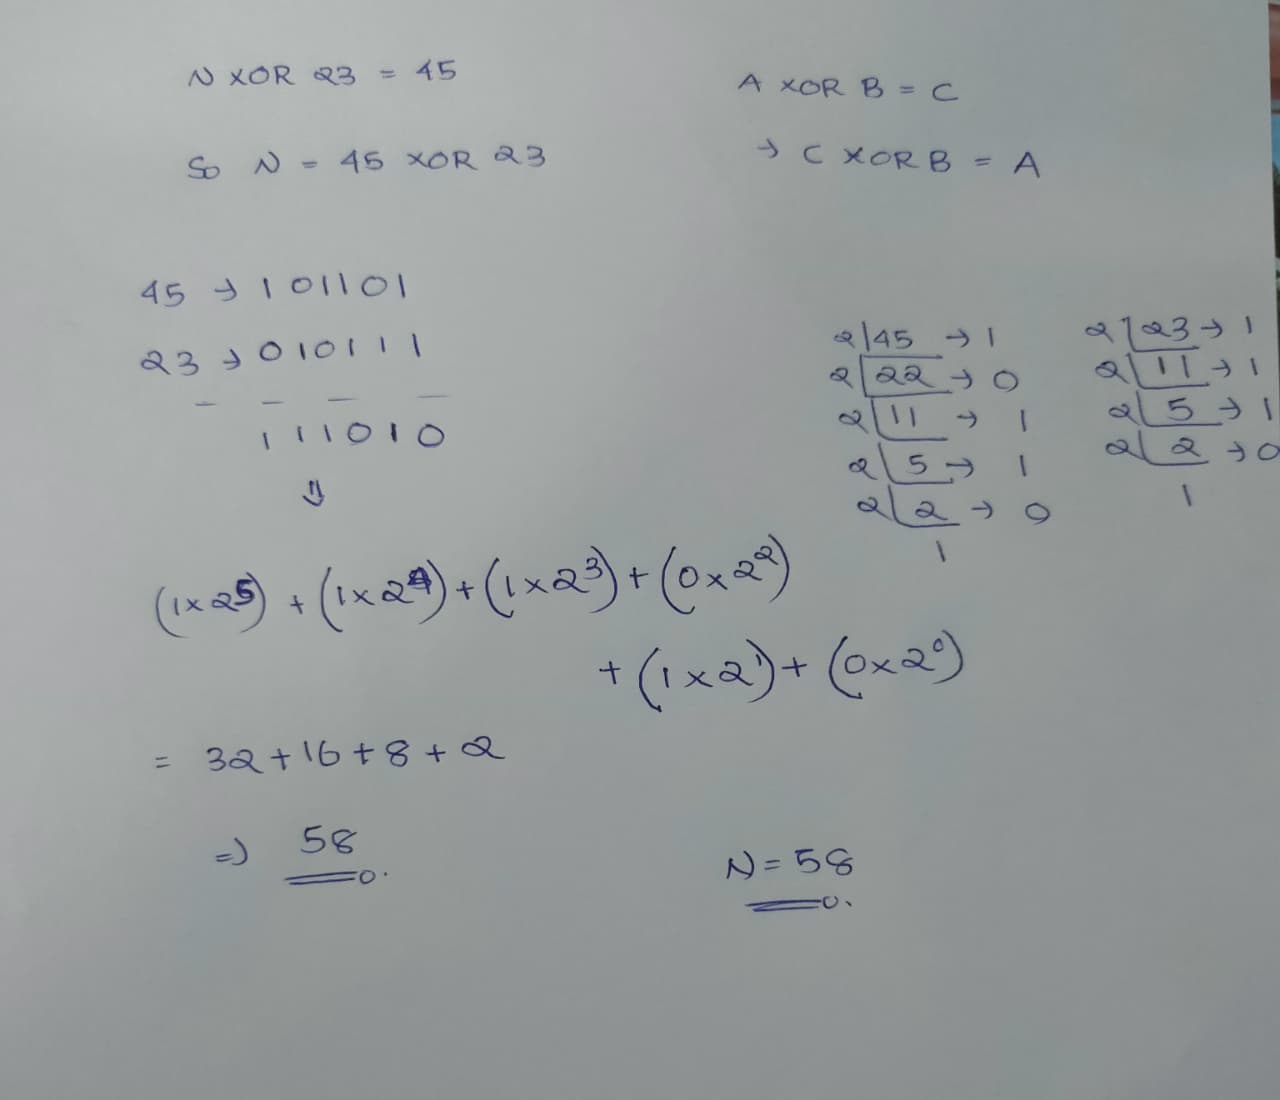 N XOR 23 = 45
So N = 45 XOR 23
A XOR B = C
→ C XOR B = A
45 → 101101
23 → 010111
111010
⇓
2|45 → 1
2|22 → 0
2|11 → 1
2|5 → 1
2|2 → 0
1
2|23 → 1
2|11 → 1
2|5 → 1
2|2 → 0
1
(1×2⁵) + (1×2⁴) + (1×2³) + (0×2²)
+ (1×2¹) + (0×2⁰)
= 32 + 16 + 8 + 2
⇒ 58
N = 58